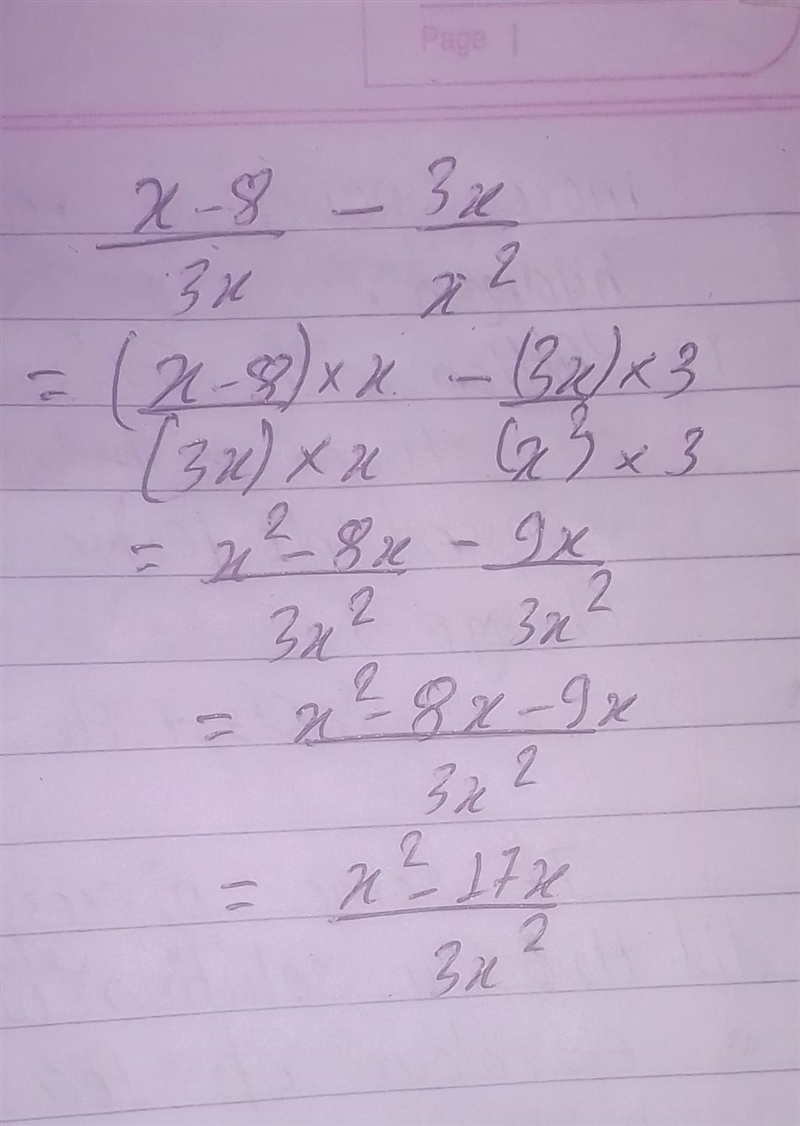 Page
x-8/3x - 3x/x²
= (x-8)×x/(3x)×x - (3x)×3/(x²)×3
= x²-8x/3x² - 9x/3x²
= x²-8x-9x/3x²
= x²-17x/3x²